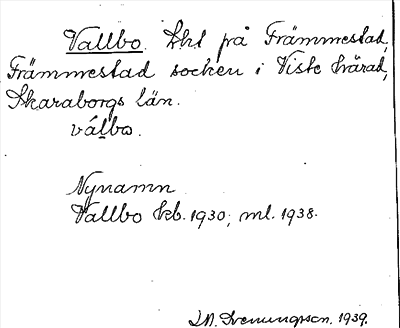 Vallbo. Lht på Främmestad,
Främmestad socken i Viste härad,
Skaraborgs län.
válbo.
Nynamn
Vallbo kb. 1930; ml. 1938.
Svenungsson. 1939.